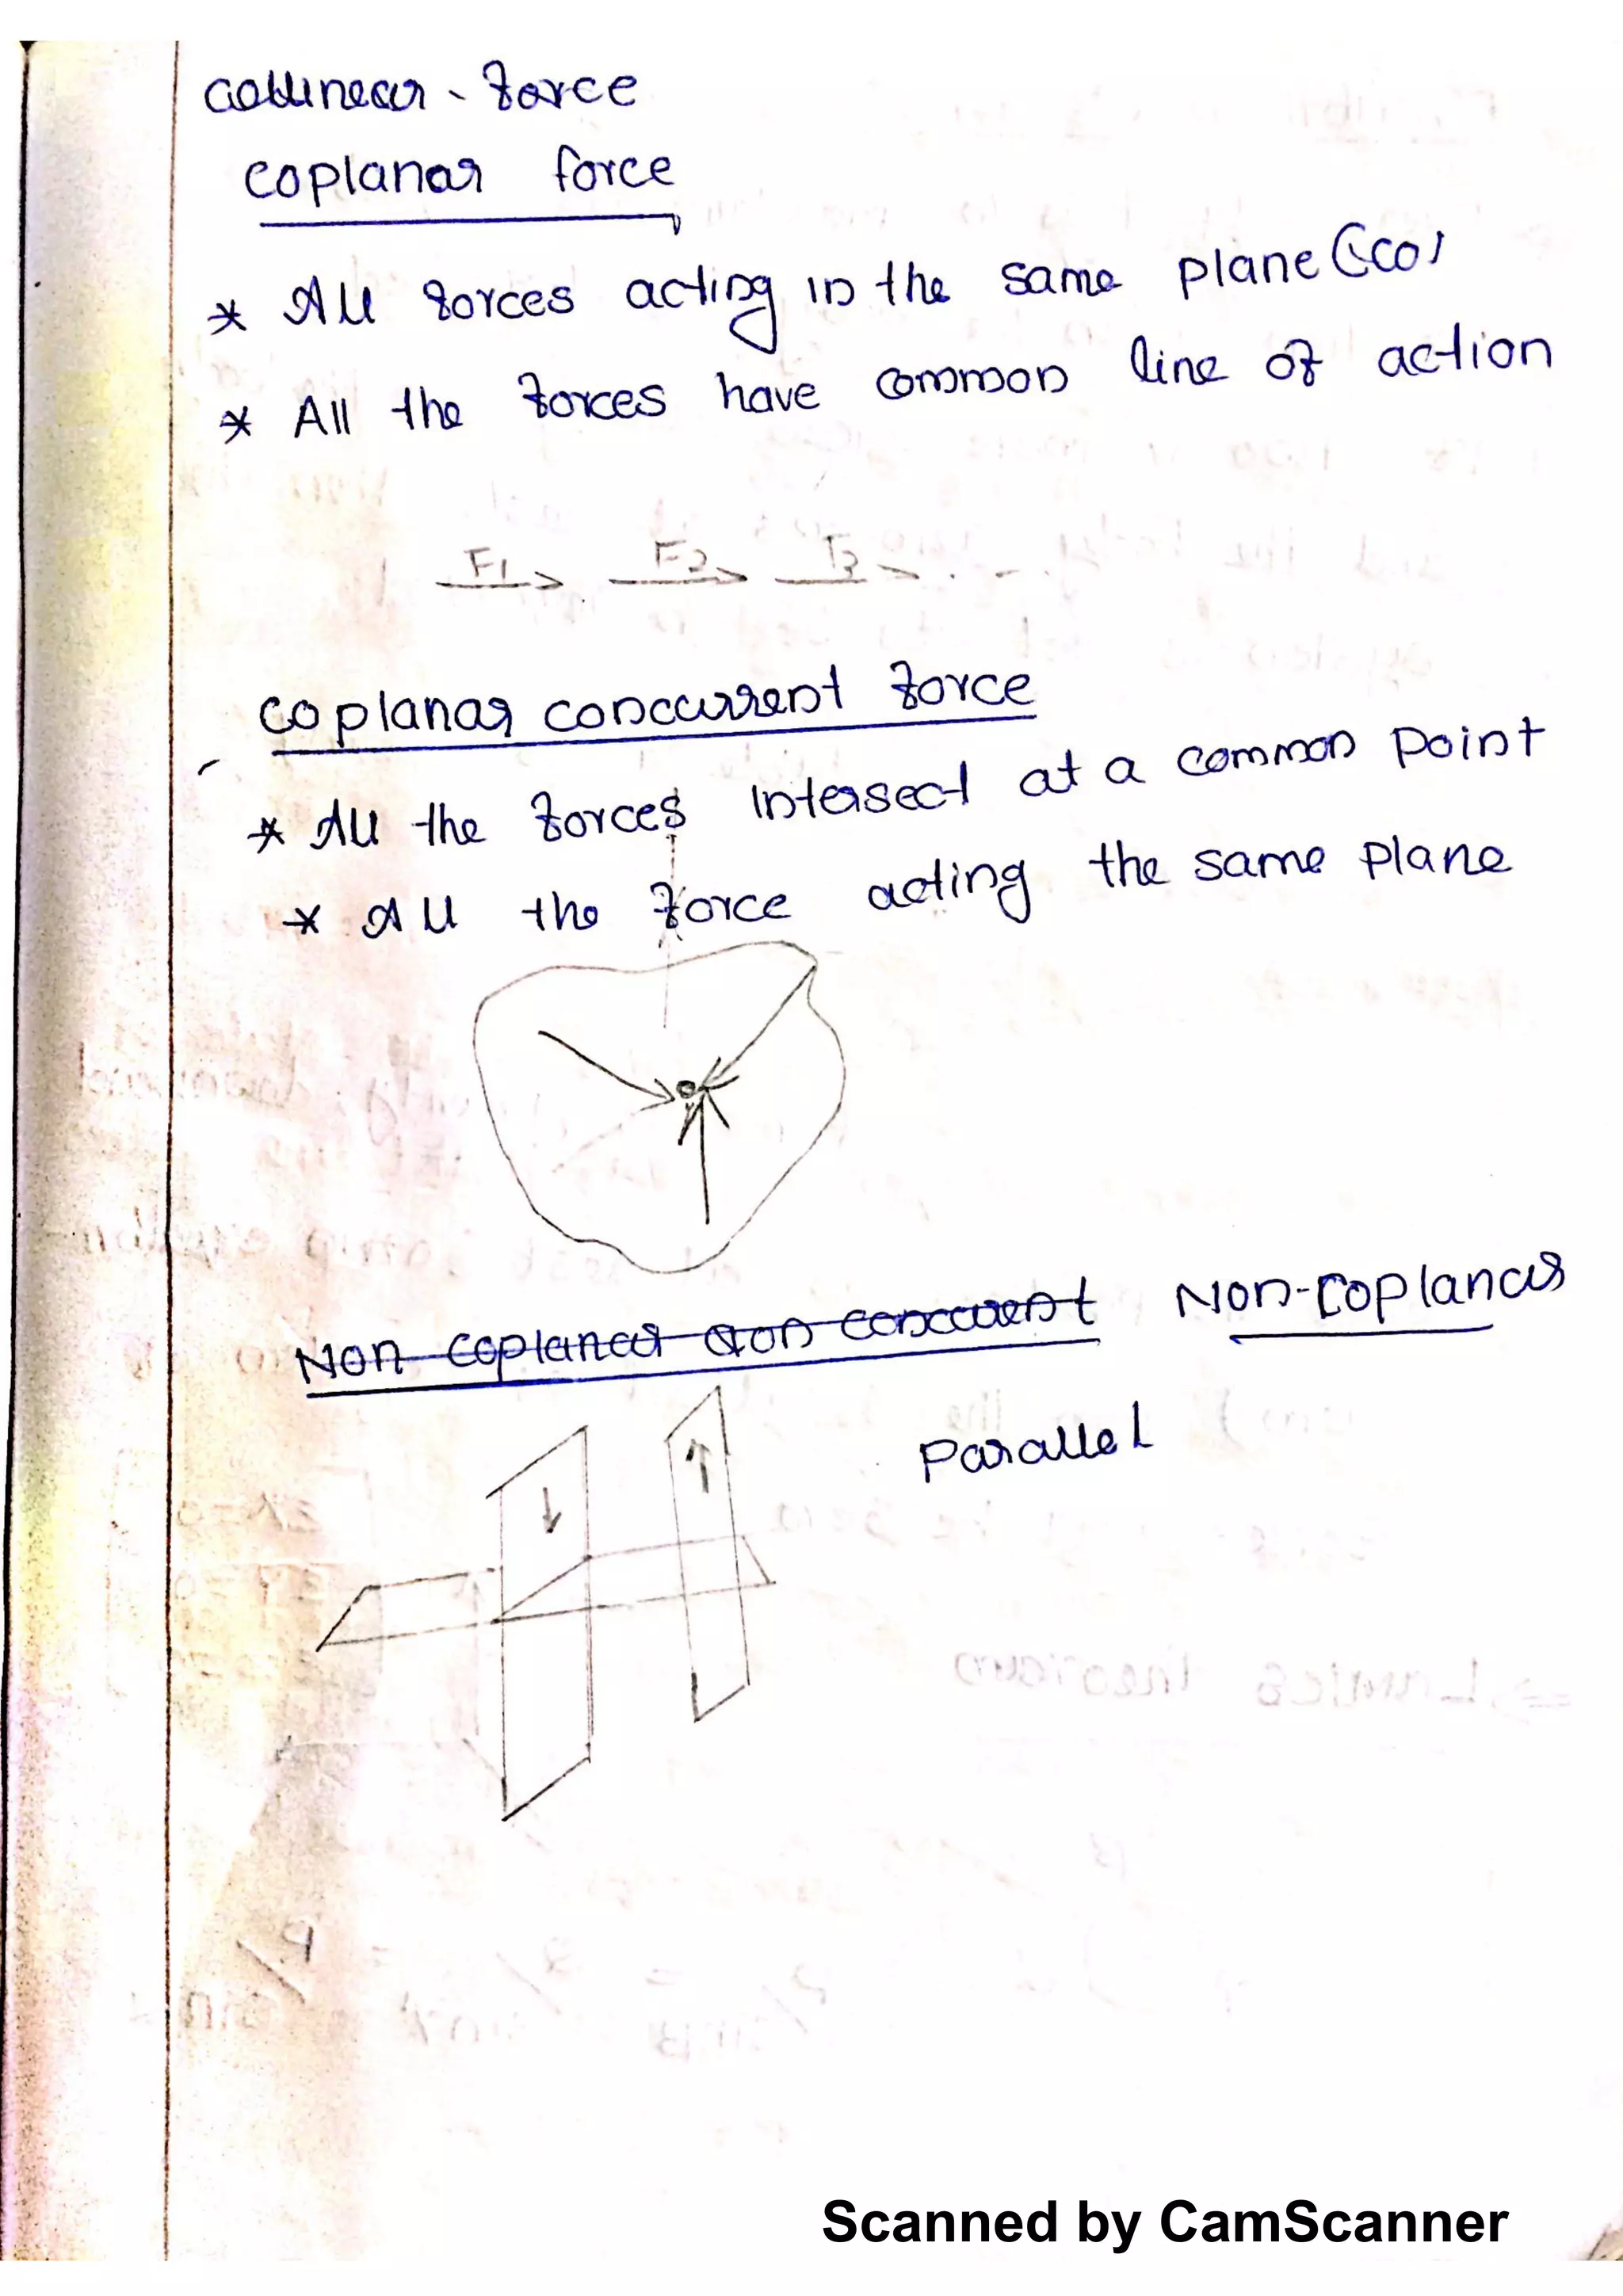 Collinear - force
coplanar force
* All forces acting in the same plane
* All the forces have common line of action
F1 F2 F3 . - .
coplanar concurrent force
* All the forces intersect at a common point
* All the force acting the same plane
Non-coplanar
Parallel
Scanned by CamScanner